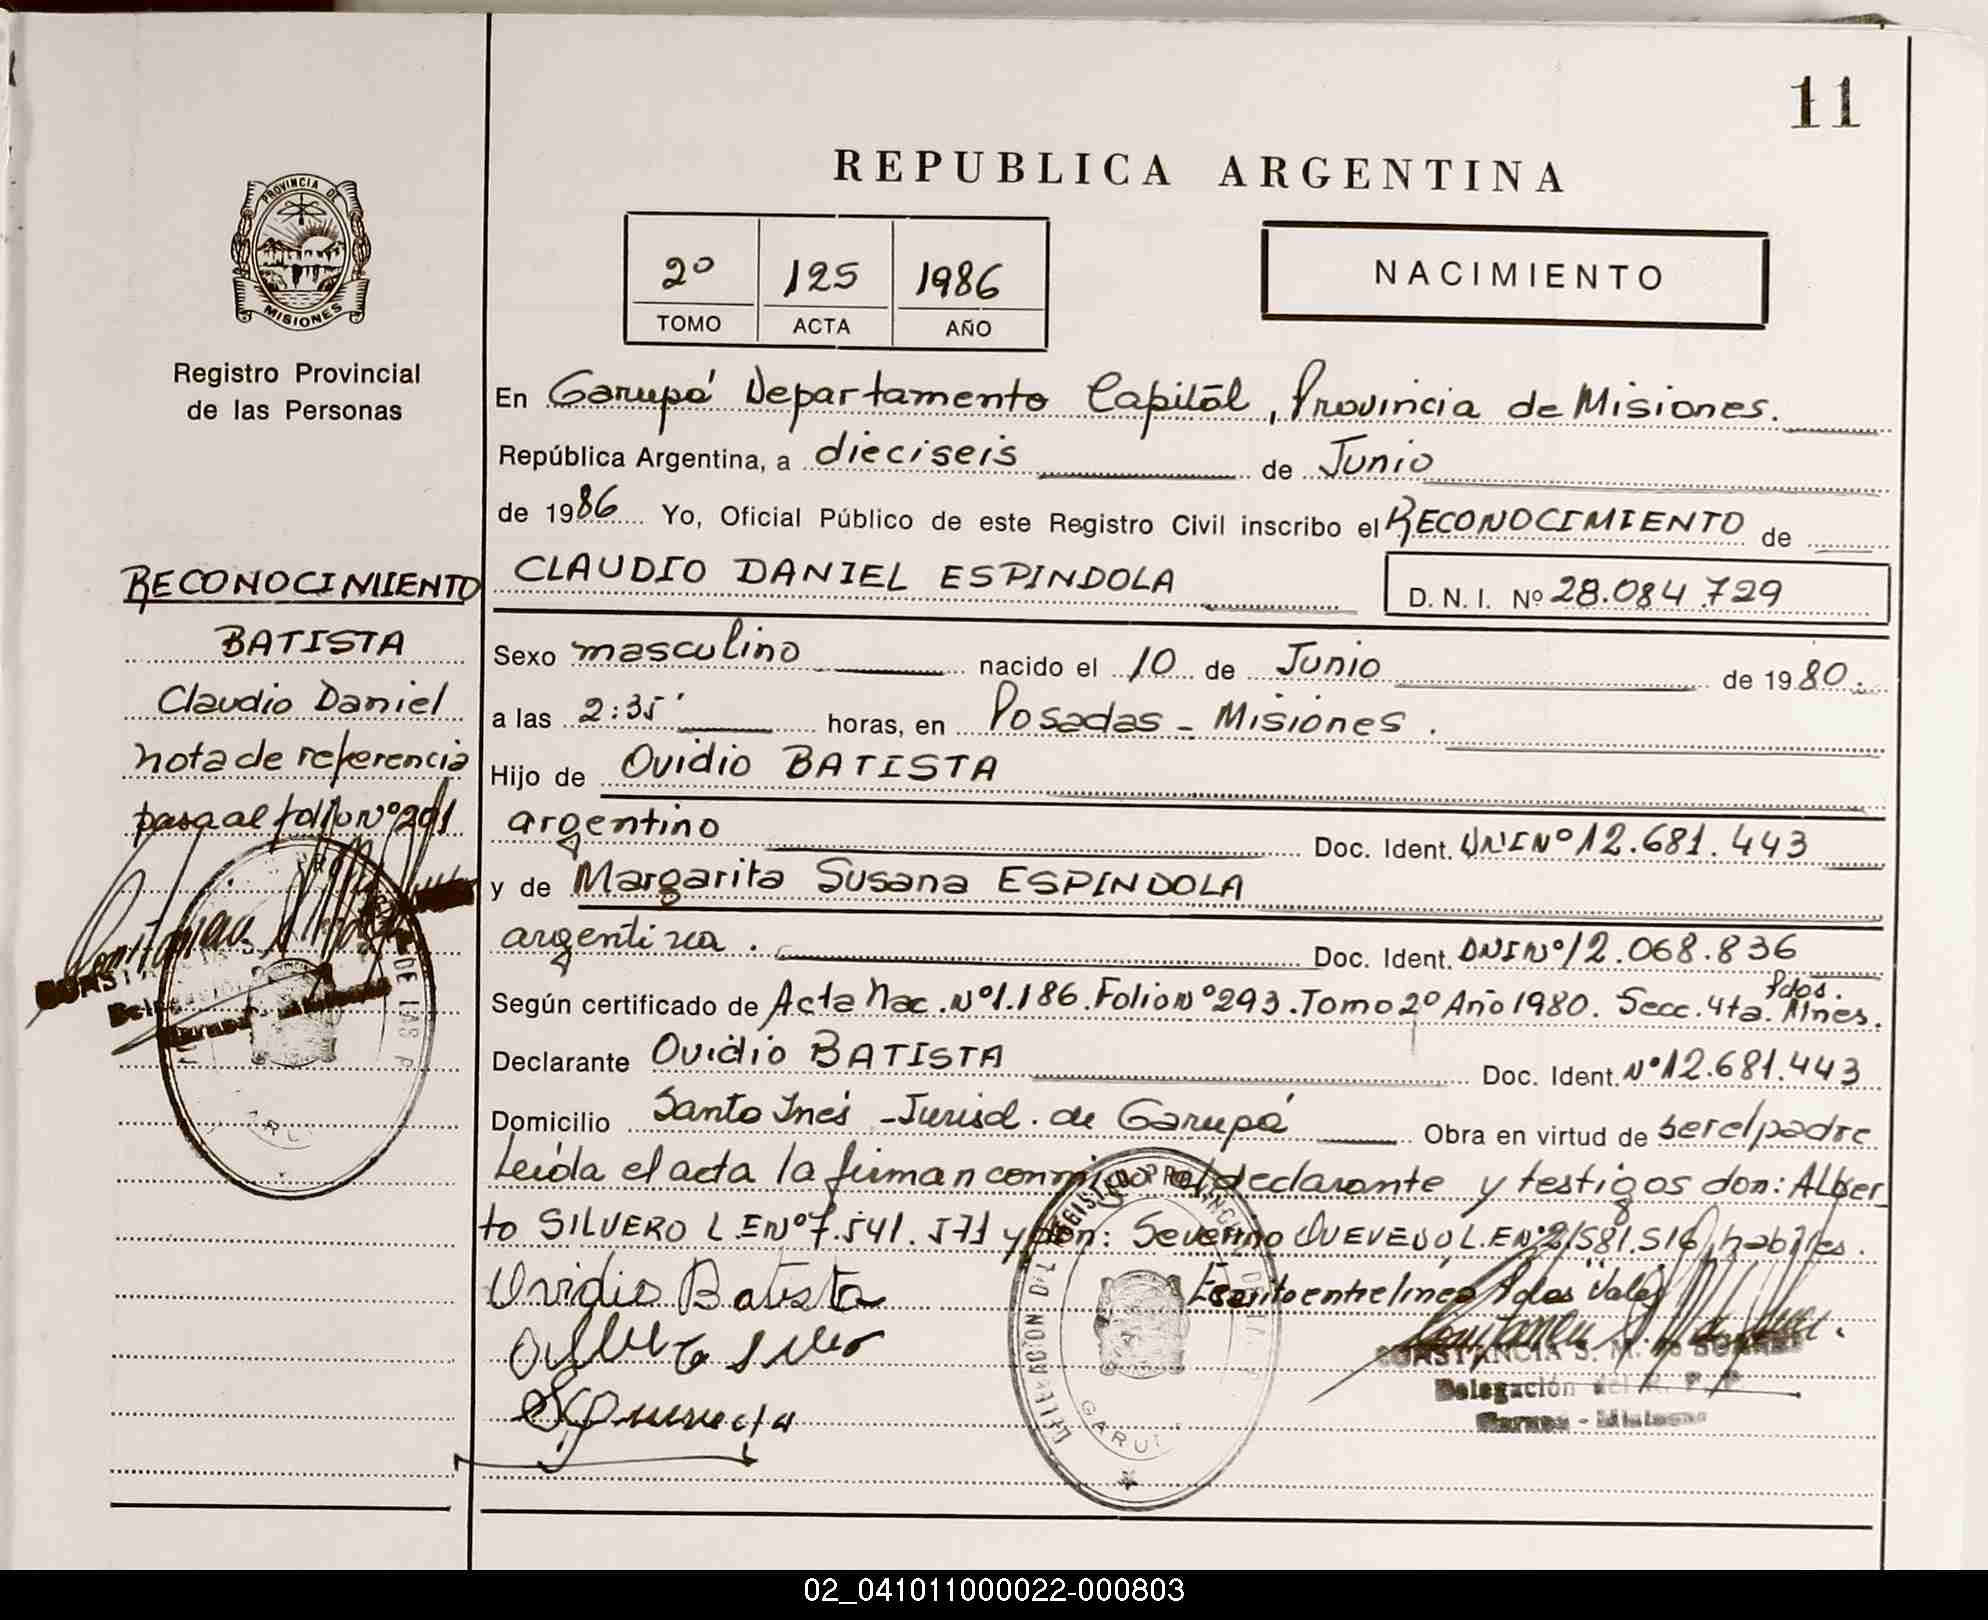 11
REPUBLICA ARGENTINA
PROVINCIA DE
MISIONES
Registro Provincial
de las Personas
2º 125 1986
TOMO ACTA AÑO
NACIMIENTO
En Garupá Departamento Capitál, Provincia de Misiones.
República Argentina, a dieciseis de Junio
de 1986 Yo, Oficial Público de este Registro Civil inscribo el RECONOCIMIENTO de
CLAUDIO DANIEL ESPINDOLA D. N. I. Nº 28.084.729
RECONOCIMIENTO
BATISTA
Claudio Daniel
nota de referencia
pasa al folio Nº 201
Sexo masculino nacido el 10 de Junio de 1980.
a las 2:35' horas, en Posadas - Misiones.
Hijo de Ovidio BATISTA
argentino Doc. Ident. DNI Nº 12.681.443
y de Margarita Susana ESPINDOLA
argentina. Doc. Ident. DNI Nº 12.068.836
Pdos.
Según certificado de Acta Nac. Nº 1.186. Folio Nº 293. Tomo 2º Año 1980. Secc. 4ta. Mnes.
Declarante Ovidio BATISTA Doc. Ident. Nº 12.681.443
Domicilio Santo Inés - Jurisd. de Garupá Obra en virtud de ser el padre
Leida el acta la firman conmigo el declarante y testigos don: Alber
to SILVERO L.E Nº 7.541.571 y don: Severino QUEVEDO L.E Nº 2.581.516, habiles.
Escrito entrelínea "Pdos" Vale
Ovidio Batista
CONSTANCIA S. M. de SUAREZ
Delegación del R. P. P.
Garupa - Misiones
DELEGACION DEL REGISTRO PROVINCIAL DE LAS P
GARUP
02_041011000022-000803